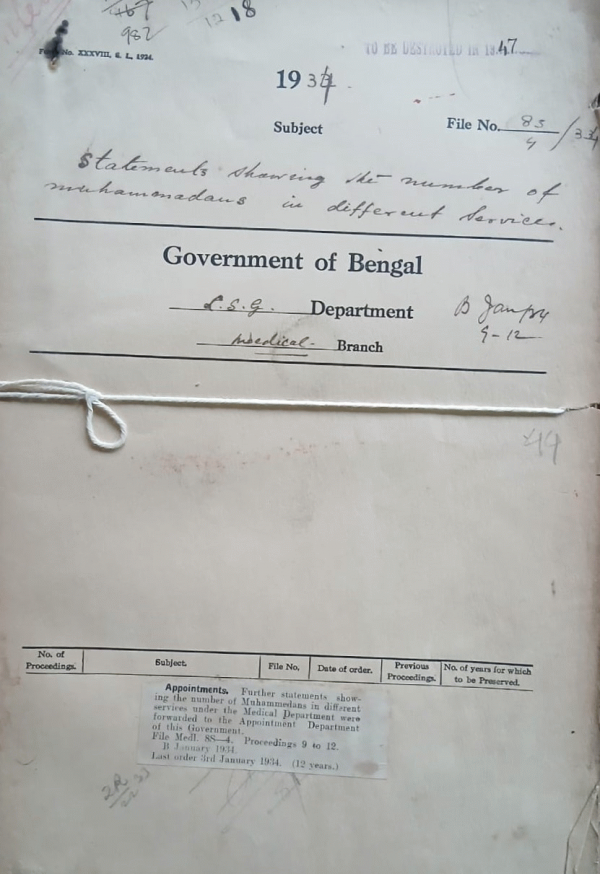 467
982
12 18
Form No. XXXVIII, S. L., 1924.
TO BE DESTROYED IN 1947
1934.
Subject
File No. 8S/4 /33
Statements showing the number of
muhammadans in different services.
Government of Bengal
L.S.G. Department
B Jany 34
9-12
Medical Branch
44
No. of Proceedings.
Subject.
File No.
Date of order.
Previous Proceedings.
No. of years for which to be Preserved.
Appointments. Further statements show-
ing the number of Muhammedans in different
services under the Medical Department were
forwarded to the Appointment Department
of this Government.
File Medl. 8S—4. Proceedings 9 to 12.
B January 1934.
Last order 3rd January 1934. (12 years.)